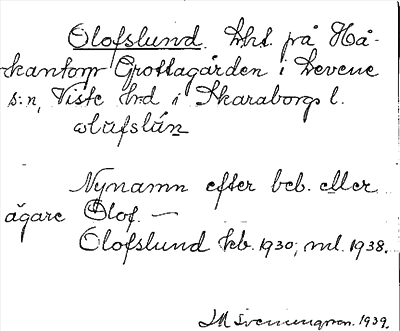 Olofslund. Lht. på Hå-
kantorp Grottagården i Levene
s:n, Viste hrd i Skaraborgs l.
ωlåfslún
Nynamn efter beb. eller
ägare Olof. —
Olofslund kb. 1930; ml. 1938.
JM Sveningson. 1939.